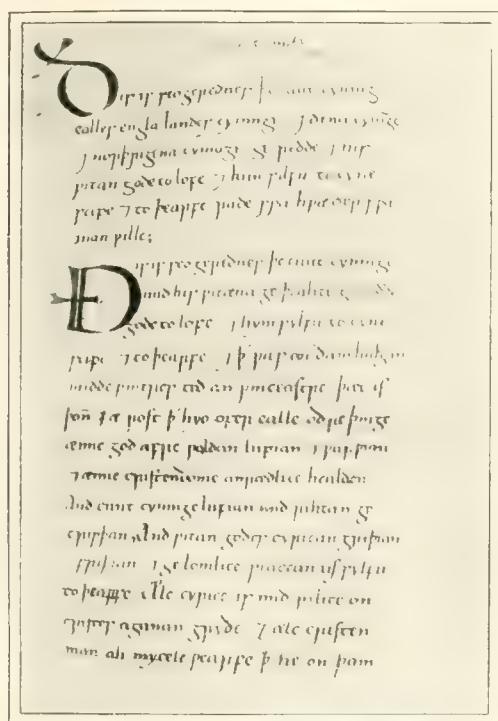 Ðis is seo gerednes þe cnut cyning
ealles engla landes cyningc 7 dena cyninge
7 norþrigena cyninge ge redde 7 his
witan gode to lofe 7 him sylfu to cyne
scipe 7 to þearfe rade swa hwæðer swa
man wille;
Ðis is seo gerednes þe cnut cyninge
mid his witena geþeahte
gode to lofe 7 him sylfu to cyne
scipe 7 to þearfe 7 þ wæs on ðam halgan
midde wintres tid on winceastre þæt is
þoñ ærost þ hi ofer ealle oðre þinge
ænne god æfre woldan lufian 7 wurþian
7 ænne cristendome anrædlice healdan
And cnut cyninge lufian mid rihtan
And witan godes cyrican griþian
friþian 7 ge lomlice secean us sylfu
to þearfe Ælc cyrice is mid rihte on
cristes agenan griðe 7 ælc cristen
man ah mycele þearfe þ he on þam